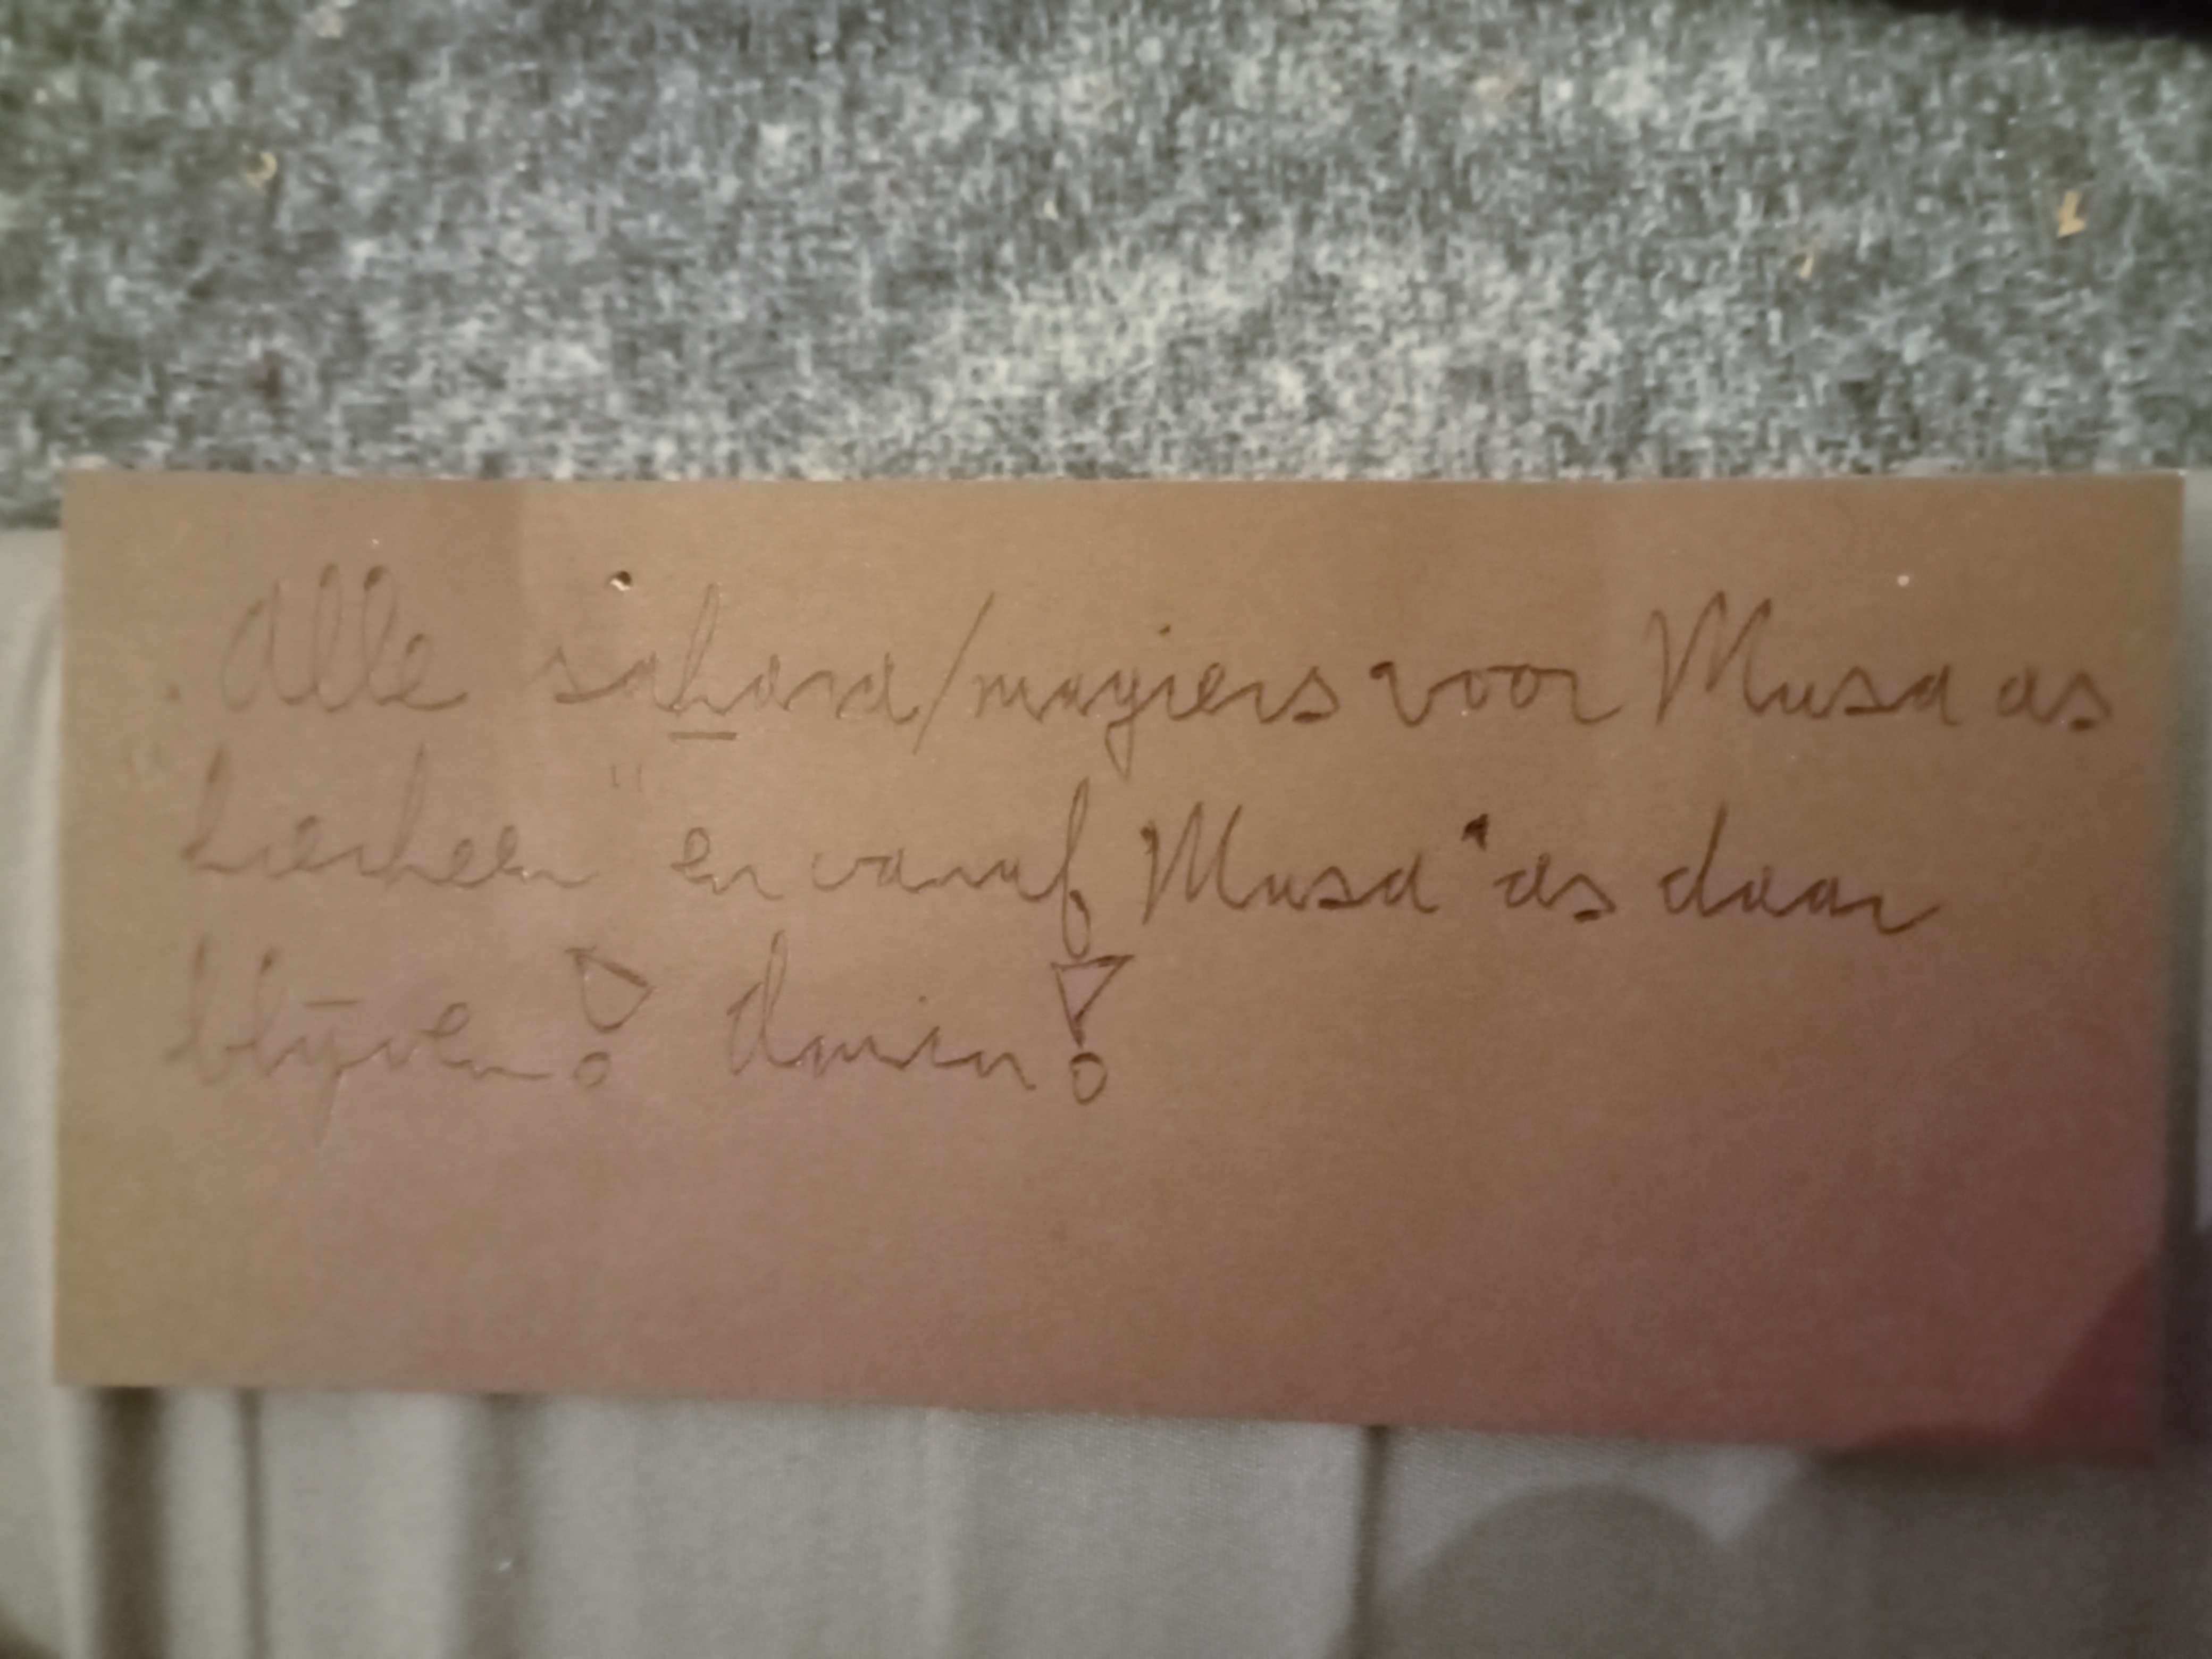 . Alle sahara/magiers voor Musa as
"hierheen" en vanaf Musa as daar
blijven! daarin!